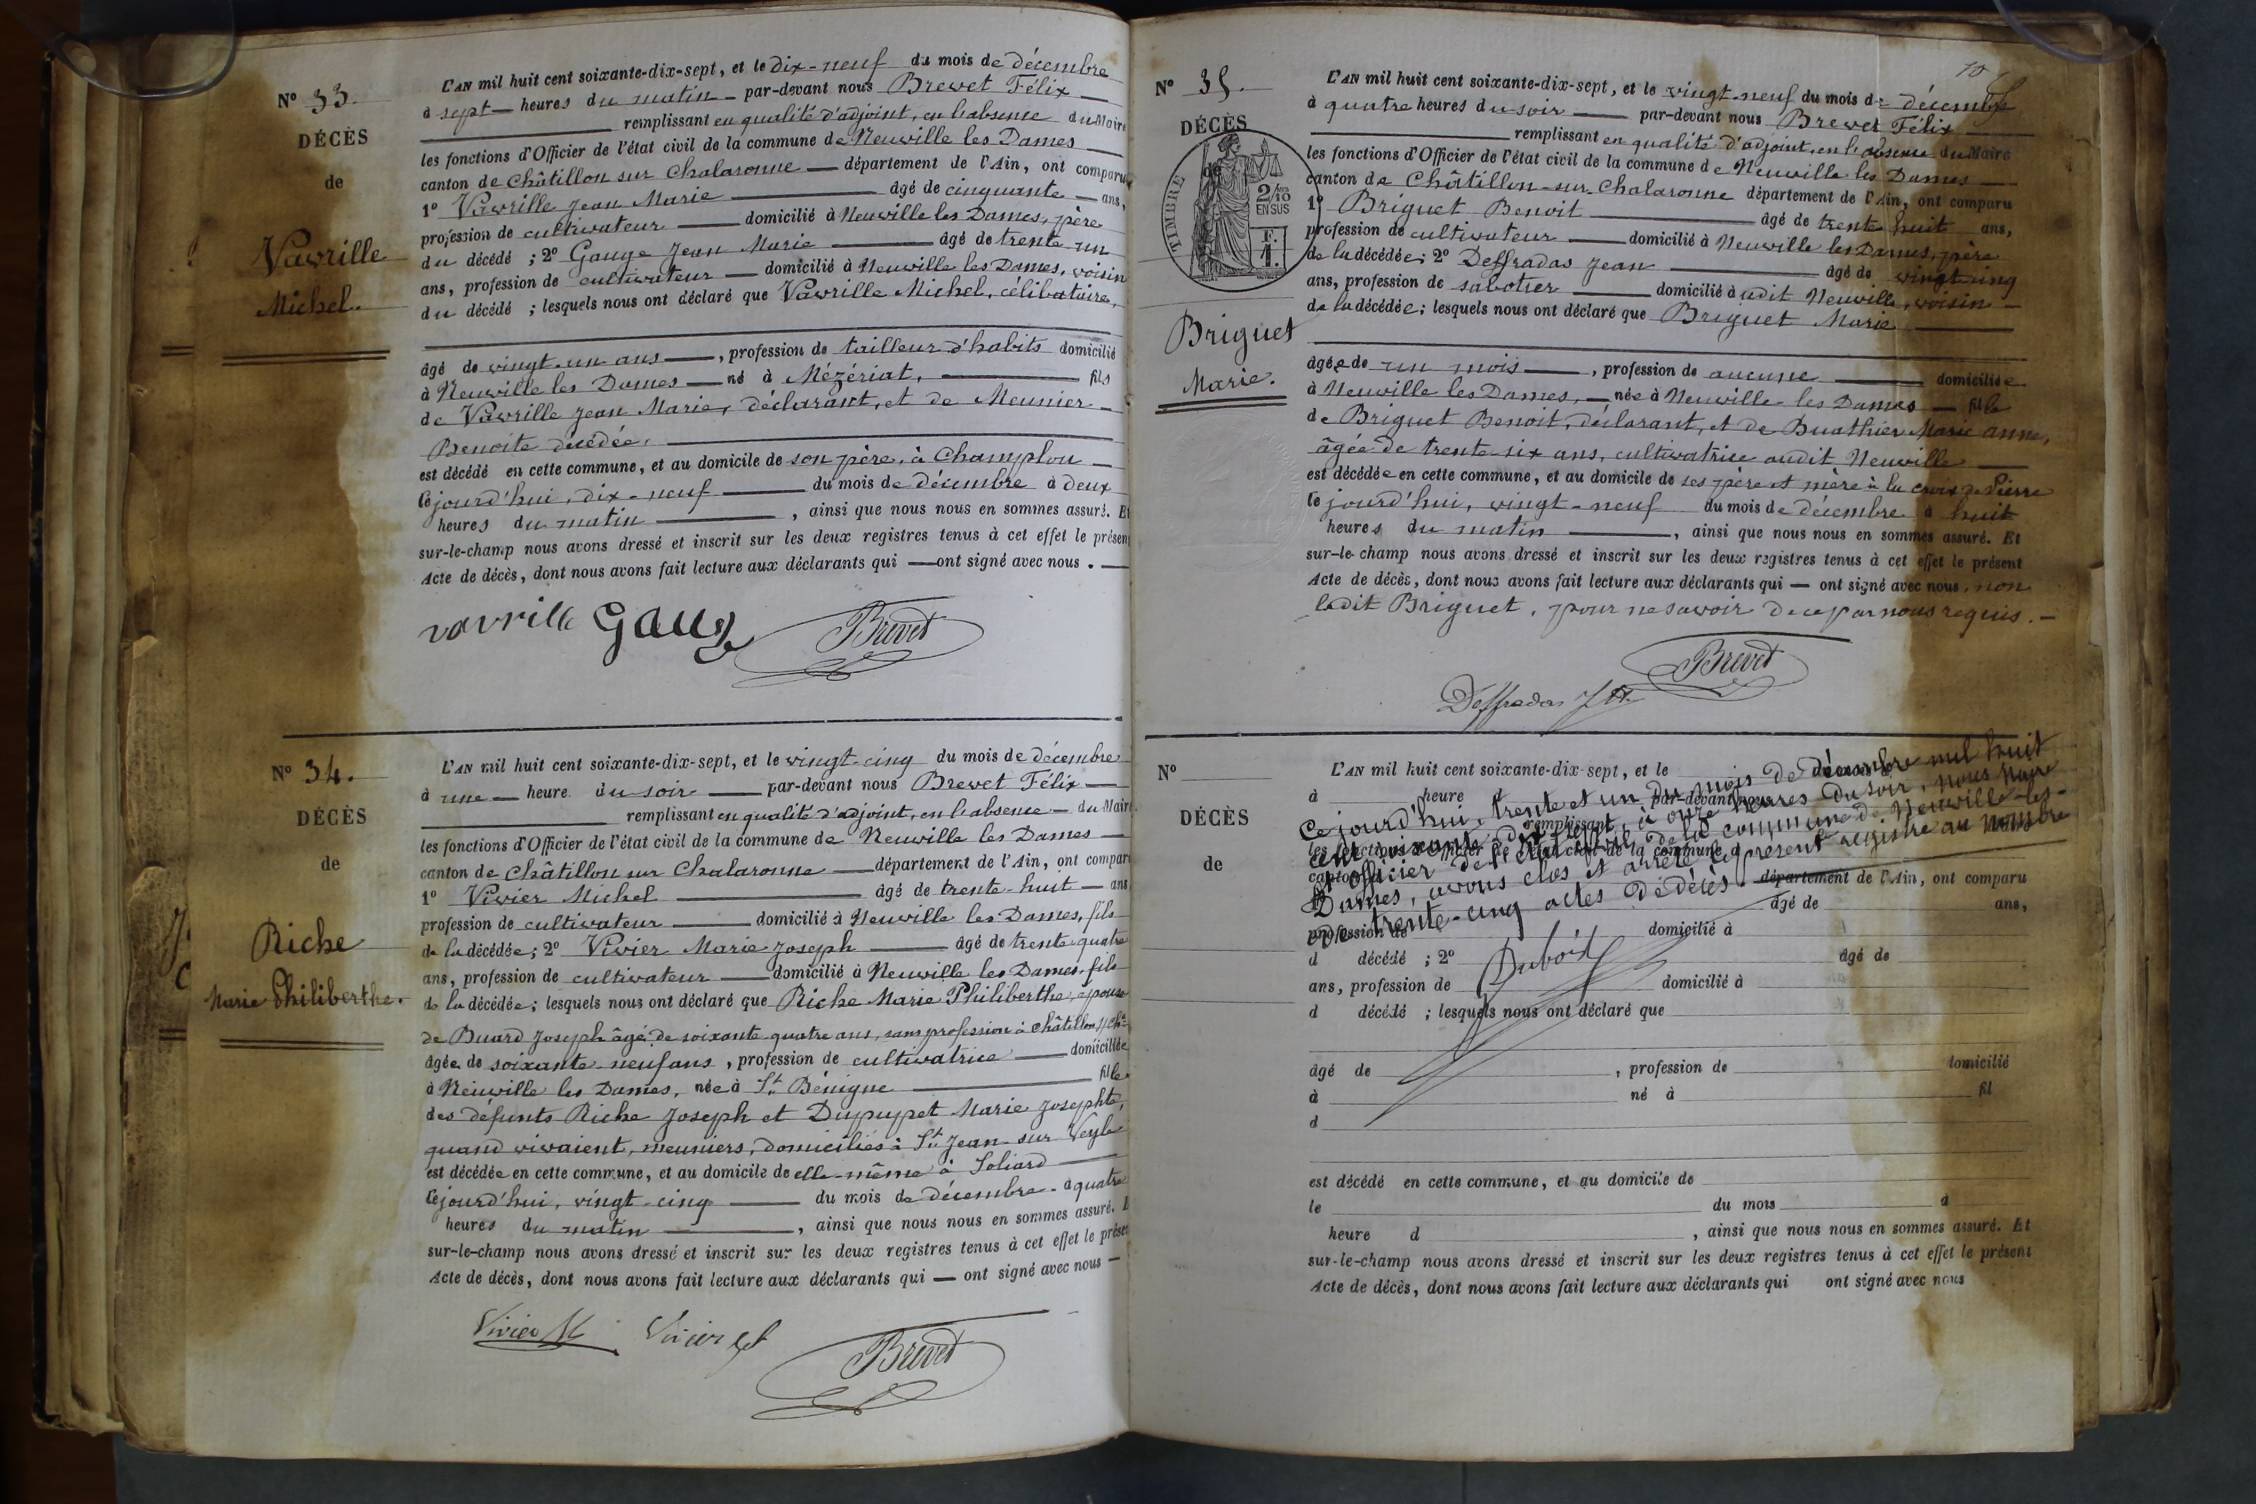 N° 33.
DÉCÈS
de
Vavrille
Michel.
L'AN mil huit cent soixante-dix-sept, et le dix-neuf du mois de décembre
à sept heures du matin par-devant nous Brevet Félix
remplissant en qualité d'adjoint, en l'absence du Maire
les fonctions d'Officier de l'état civil de la commune de Neuville les Dames
canton de Châtillon sur Chalaronne département de l'Ain, ont comparu
1° Vavrille Jean Marie âgé de cinquante ans,
profession de cultivateur domicilié à Neuville les Dames, père
du décédé ; 2° Gauge Jean Marie âgé de trente-un
ans, profession de cultivateur domicilié à Neuville les Dames, voisin
du décédé ; lesquels nous ont déclaré que Vavrille Michel, célibataire,
âgé de vingt-un ans, profession de tailleur d'habits domicilié
à Neuville les Dames né à Mézériat, fils
de Vavrille Jean Marie, déclarant, et de Meunier
Benoite décédée,
est décédé en cette commune, et au domicile de son père, à Champlou
cejourd'hui, dix-neuf du mois de décembre à deux
heures du matin, ainsi que nous nous en sommes assuré. Et
sur-le-champ nous avons dressé et inscrit sur les deux registres tenus à cet effet le présent
Acte de décès, dont nous avons fait lecture aux déclarants qui ont signé avec nous.
vavrille Gauge Brevet
N° 34.
DÉCÈS
de
Riche
Marie Philiberthe.
L'AN mil huit cent soixante-dix-sept, et le vingt-cinq du mois de décembre
à une heure du soir par-devant nous Brevet Félix
remplissant en qualité d'adjoint, en l'absence du Maire
les fonctions d'Officier de l'état civil de la commune de Neuville les Dames
canton de Châtillon sur Chalaronne département de l'Ain, ont comparu
1° Vivier Michel âgé de trente-huit ans
profession de cultivateur domicilié à Neuville les Dames, fils
de la décédée ; 2° Vivier Marie Joseph âgé de trente quatre
ans, profession de cultivateur domicilié à Neuville les Dames, fils
de la décédée ; lesquels nous ont déclaré que Riche Marie Philiberthe, épouse
de Buard Joseph âgé de soixante quatre ans, sans profession à Châtillon s/ Ch.
âgée de soixante-neuf ans, profession de cultivatrice domiciliée
à Neuville les Dames, née à St Bénigne fille
des défunts Riche Joseph et Dupupet Marie Josephte,
quand vivaient, meuniers, domiciliés à St Jean-sur-Veyle
est décédée en cette commune, et au domicile de elle-même à Soliard
cejourd'hui, vingt-cinq du mois de décembre à quatre
heures du matin, ainsi que nous nous en sommes assuré. E
sur-le-champ nous avons dressé et inscrit sur les deux registres tenus à cet effet le présen
Acte de décès, dont nous avons fait lecture aux déclarants qui ont signé avec nous
Vivier M Vivier Brevet
10
N° 35.
DÉCÈS
de
TIMBRE
2/10
EN SUS
Briguet
Marie.
L'AN mil huit cent soixante-dix-sept, et le vingt-neuf du mois de décembre
à quatre heures du soir par-devant nous Brevet Félix
remplissant en qualité d'adjoint, en l'absence du Maire
les fonctions d'Officier de l'état civil de la commune de Neuville les Dames
canton de Châtillon-sur-Chalaronne département de l'Ain, ont comparu
1° Briguet Benoit âgé de trente huit ans,
profession de cultivateur domicilié à Neuville les Dames, père
de la décédée ; 2° Deffradas Jean âgé de vingt-cinq
ans, profession de sabotier domicilié à udit Neuville, voisin
de la décédée ; lesquels nous ont déclaré que Briguet Marie
âgée de un mois, profession de aucune domiciliée
à Neuville les Dames, née à Neuville les Dames fille
de Briguet Benoit, déclarant, et de Buathier Marie anne,
âgée de trente-six ans, cultivatrice audit Neuville
est décédée en cette commune, et au domicile de ses père et mère à la croix de Pierre
cejourd'hui, vingt-neuf du mois de décembre à huit
heures du matin, ainsi que nous nous en sommes assuré. Et
sur-le-champ nous avons dressé et inscrit sur les deux registres tenus à cet effet le présent
Acte de décès, dont nous avons fait lecture aux déclarants qui ont signé avec nous, non
ledit Briguet, pour ne savoir de ce par nous requis.
Brevet
Deffradas
N°
DÉCÈS
de
L'AN mil huit cent soixante-dix-sept, et le
à heure d par-devant nous
remplissant
les fonctions d'Officier de l'état civil de la commune d
canton
département de l'Ain, ont comparu
Cejourd'hui, trente et un du mois de décembre mil huit
cent soixante-dix sept, à onze heures du soir, nous Maire
et officier de l'état civil de la commune de Neuville-les-
Dames, avons clos et arrêté le présent registre au nombre
de trente-cinq actes de décès.
âgé de ans,
profession de domicilié à
d décédé ; 2° âgé de
Dubois
ans, profession de domicilié à
d décédé ; lesquels nous ont déclaré que
âgé de , profession de domicilié
à né à fil
d
est décédé en cette commune, et au domicile de
le du mois à
heure d , ainsi que nous nous en sommes assuré. Et
sur-le-champ nous avons dressé et inscrit sur les deux registres tenus à cet effet le présent
Acte de décès, dont nous avons fait lecture aux déclarants qui ont signé avec nous